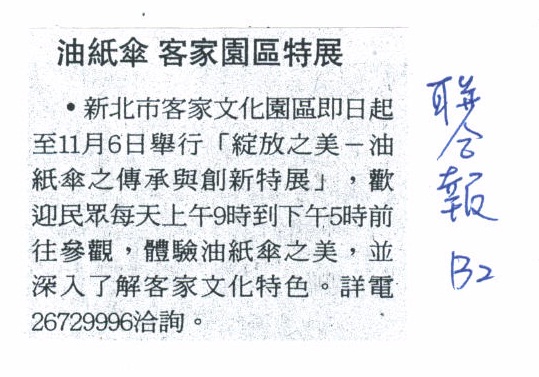 油紙傘 客家園區特展
•新北市客家文化園區即日起
至11月6日舉行「綻放之美－油
紙傘之傳承與創新特展」，歡
迎民眾每天上午9時到下午5時前
往參觀，體驗油紙傘之美，並
深入了解客家文化特色。詳電
26729996洽詢。
聯合報 B2